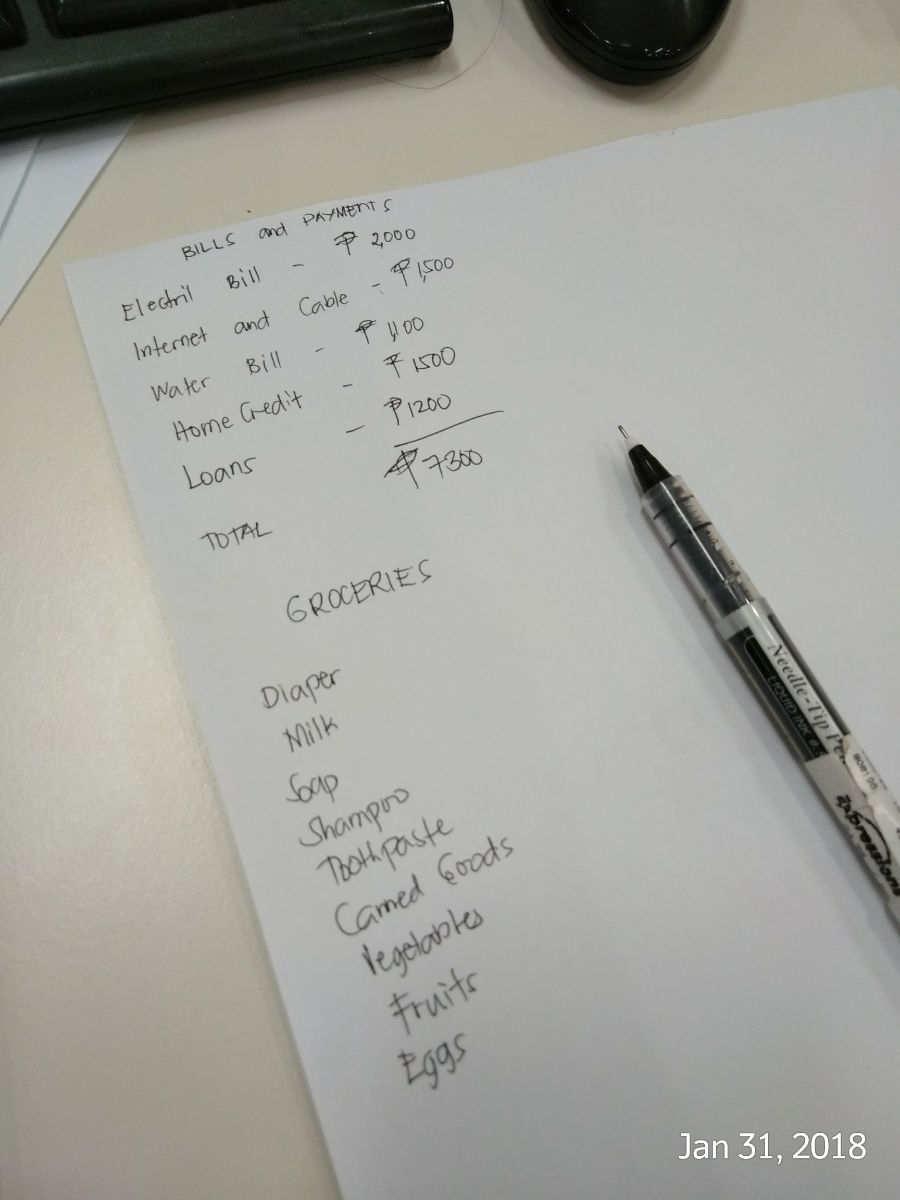 BILLS and PAYMENTS
Electril Bill - ₱ 2,000
Internet and Cable - ₱1,500
Water Bill - ₱ 1,100
Home Credit - ₱1500
Loans - ₱1200
TOTAL ₱7300
GROCERIES
Diaper
Milk
Soap
Shampoo
Toothpaste
Canned Goods
Vegetables
Fruits
Eggs
Needle-Tip Pen
LIQUID INK
Expressions
Jan 31, 2018